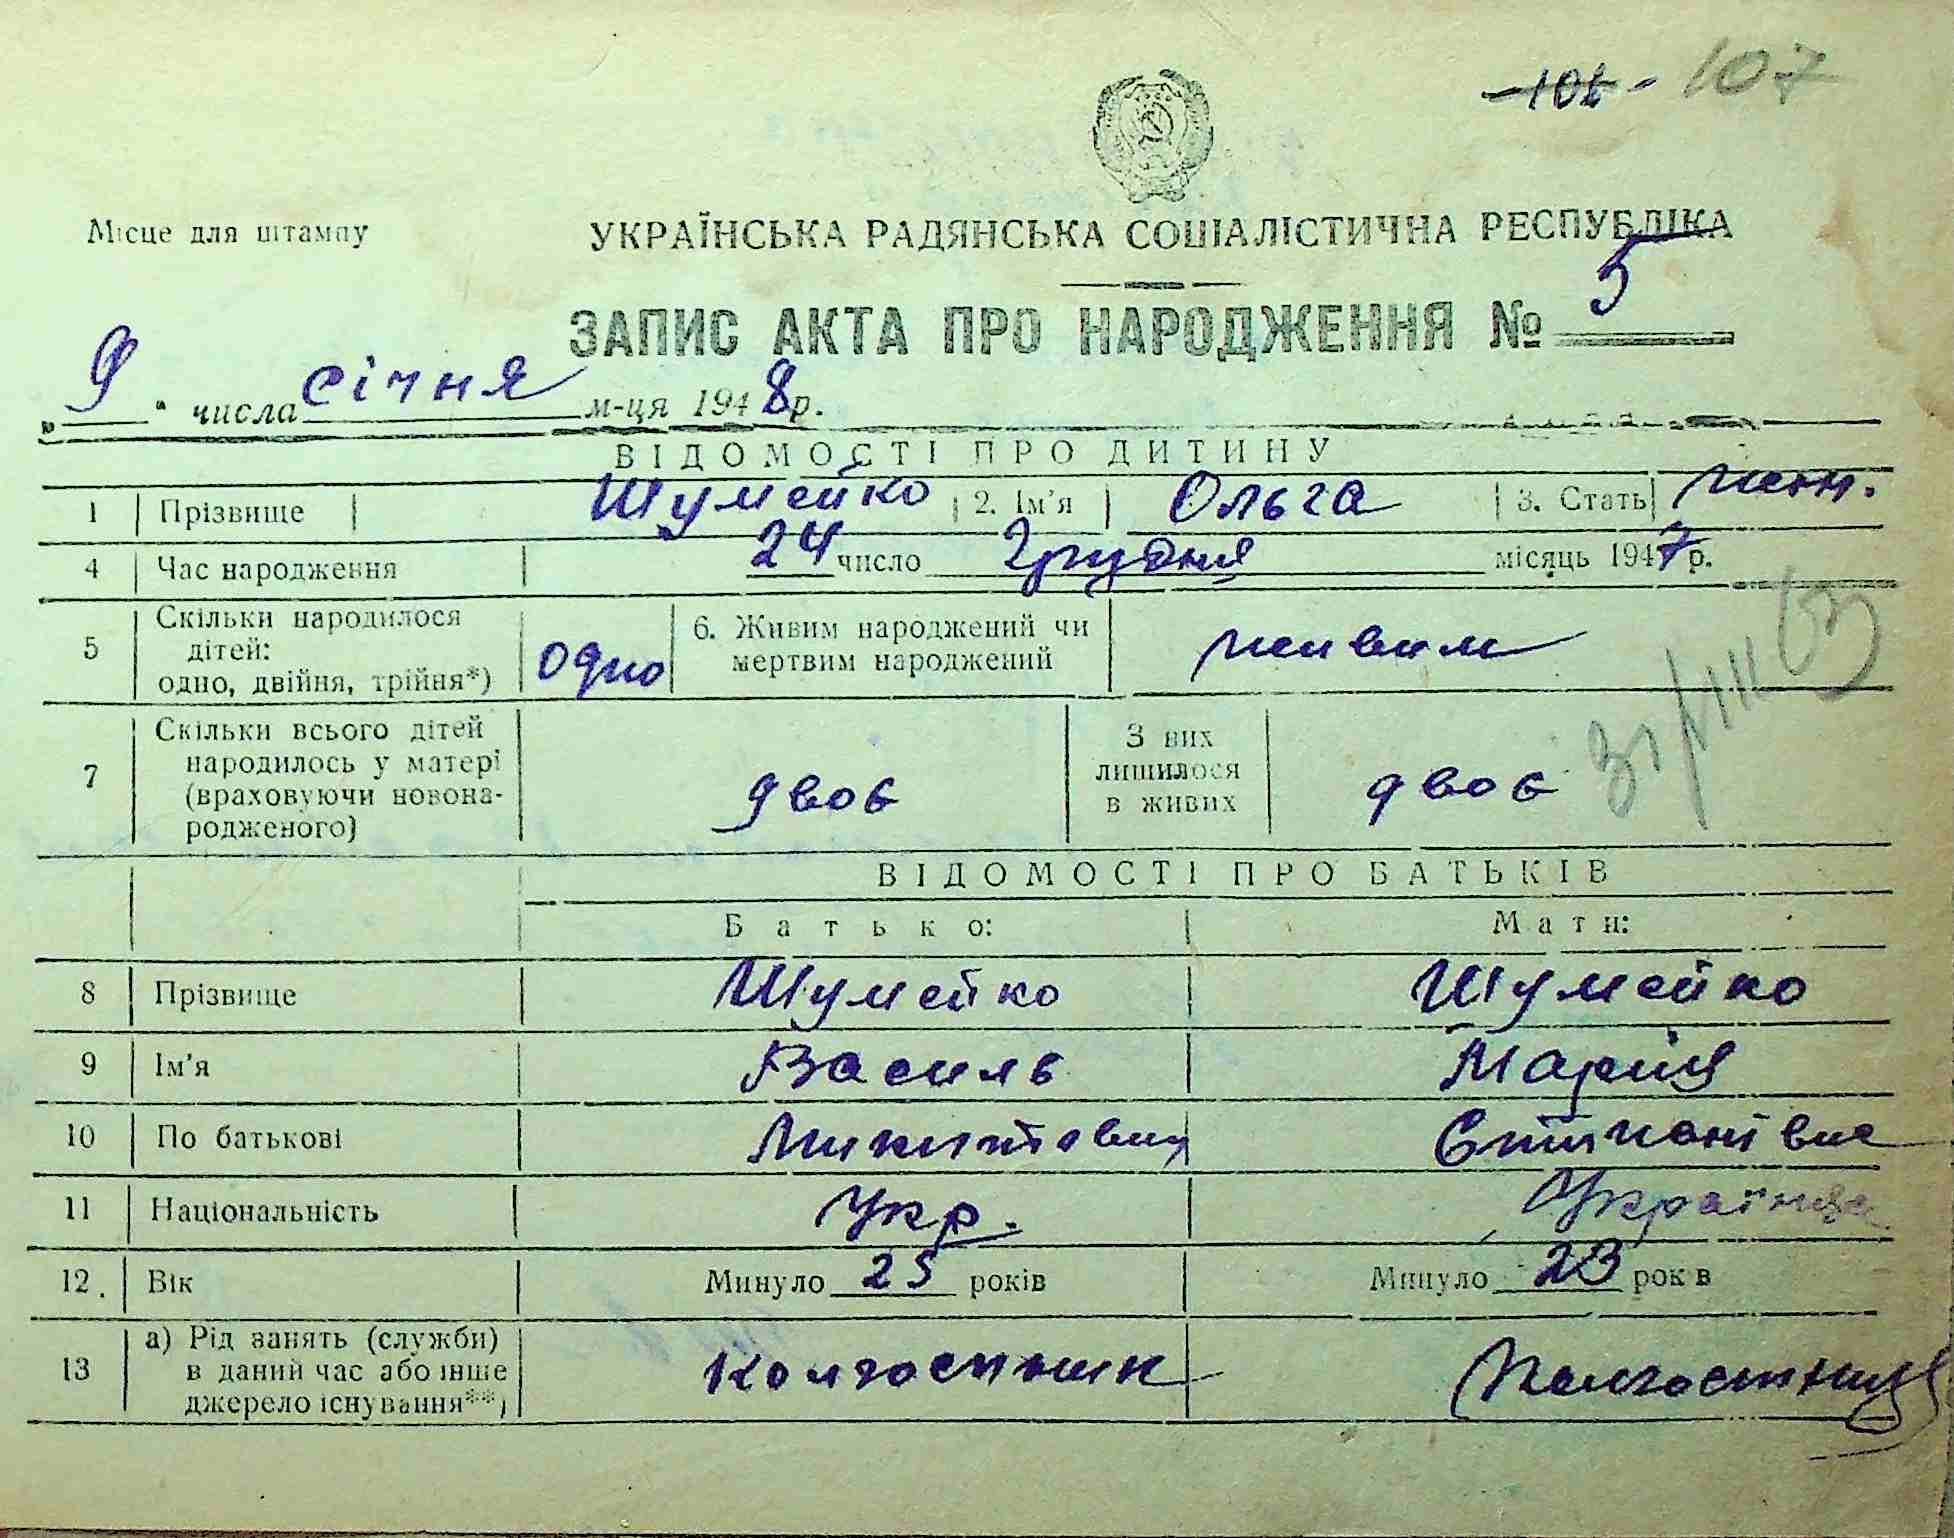 107
Місце для штампу
УКРАЇНСЬКА РАДЯНСЬКА СОЦІАЛІСТИЧНА РЕСПУБЛІКА
ЗАПИС АКТА ПРО НАРОДЖЕННЯ № 5
„ 9 " числа січня м-ця 1948 р.
ВІДОМОСТІ ПРО ДИТИНУ
1 Прізвище Шумейко 2. Ім'я Ольга 3. Стать жін.
4 Час народження 24 число Грудня місяць 1947 р.
5 Скільки народилося дітей: одно, двійня, трійня*) одно 6. Живим народжений чи мертвим народжений живим
7 Скільки всього дітей народилось у матері (враховуючи новонародженого) двоє З них лишилося в живих двоє
ВІДОМОСТІ ПРО БАТЬКІВ
Батько: Мати:
8 Прізвище Шумейко Шумейко
9 Ім'я Василь Марія
10 По батькові Микитович
11 Національність Укр. Українка
12. Вік Минуло 25 років Минуло 23 рок в
13 а) Рід занять (служби) в даний час або інше джерело існування**) Колгоспник Колгоспниця